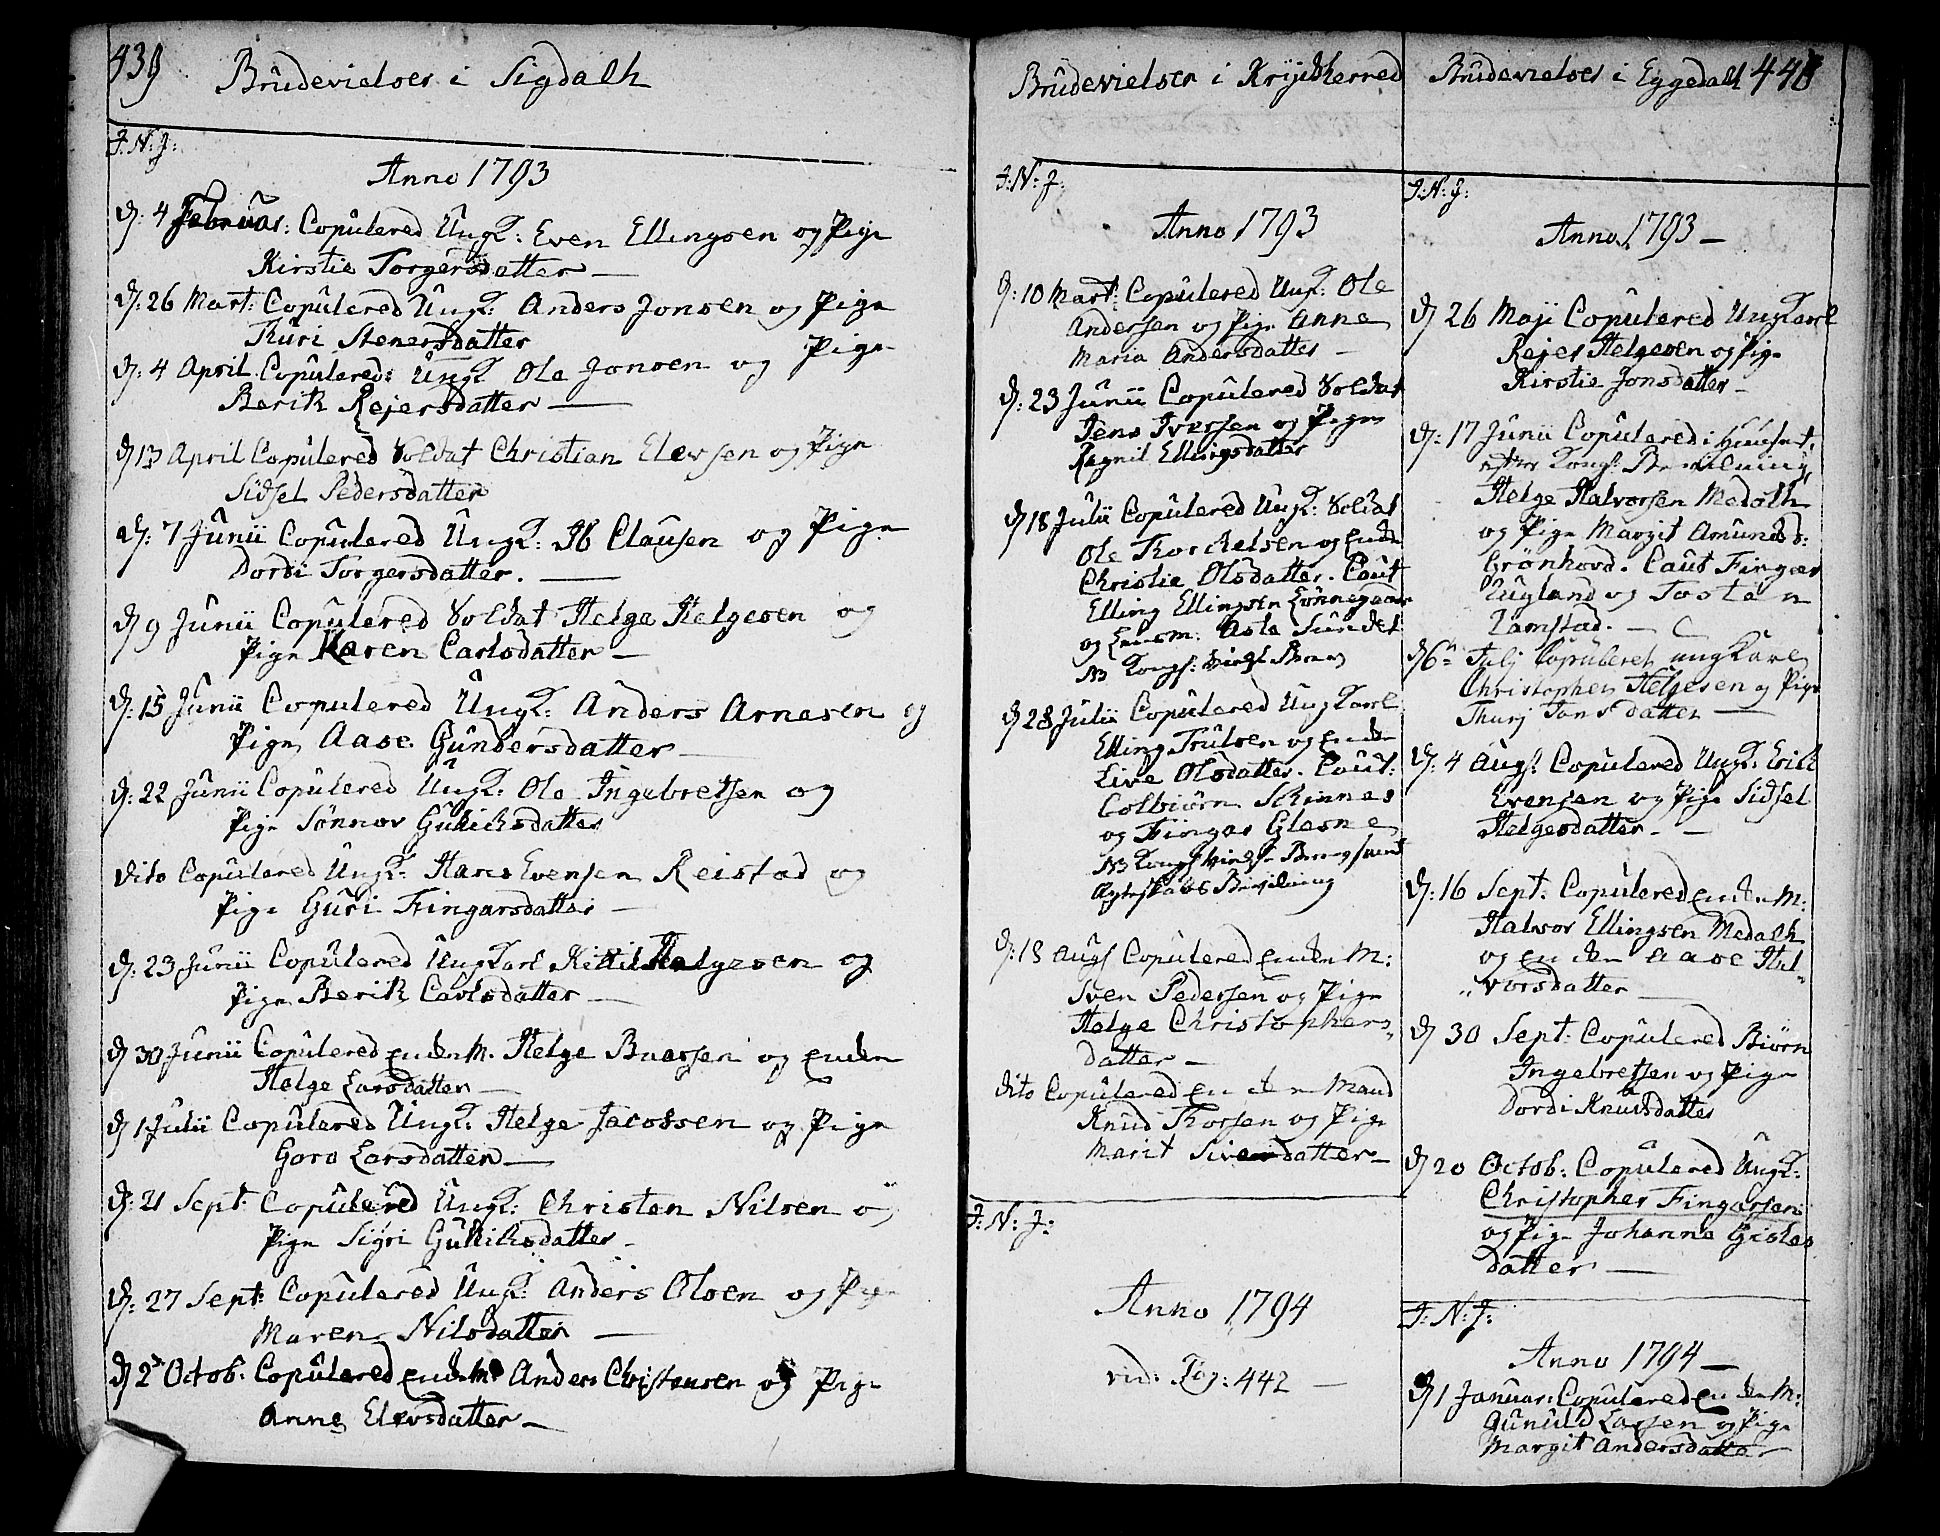 439 Brudevielser i Sigdahl
I: N: J:
Anno 1793
d: 4 Februar: Copulered Ungk: Even Ellingsen og Pige
Kirstie Torgersdatter —
d: 26 Mart: Copulered Ungk: Anders Jonsen og Pige
Thuri Stenersdatter
d: 4 April Copulered: Ungk Ole Jonsen og Pige
Berit Rejersdatter —
d 13 April Copulered Soldat Christian Elevsen og Pige
Sidsel Pedersdatter
d: 7 Junii Copulered Ungk: Ib Clausen og Pige
Dordi Torgersdatter. —
d 9 Junii Copulered Soldat Helge Helgesen og
Pige Karen Carlsdatter —
d: 15 Junii Copulered Ungk: Anders Arnesen og
Pige Aase Gundersdatter —
d: 22 Junii Copulered Ungk: Ole Ingebretsen og
Pige Sønnov Gulichsdatter
dito Copulered Ungk: Hans Evensen Reistad og
Pige Guri Fingarsdatter —
d: 23 Junii Copulered Ungkarl Kittil Helgesen og
Pige Berit Carlsdatter —
d 30 Junii Copulered Enkem. Helge Buersen og Enken
Helge Larsdatter —
d 1 Julii Copulered Ungk: Helge Jacobsen og Pige
Goro Larsdatter —
d: 21 Sept: Copulered Ungk: Christen Nilsen og
Pige Sigri Gulichsdatter —
d: 27 Sept: Copulered Ungk: Anders Olsen og Pige
Maren Nilsdatter —
d 2 Octob: Copulered Enkem: Anders Christensen og Pige
Anne Elevsdatter —
Brudevielser i Kryidsherred
I: N: J:
Anno 1793
d: 10 Mart: Copulered Ungk: Ole
Andersen og Pige Anne
Maria Andersdatter —
d: 23 Junii Copulered Soldat
Jens Iversen og Pige
Ragnil Ellingsdatter
d 18 Julii Copulered Ungk: Soldat
Ole Thorkelsen og Enke
Christie Olsdatter. Caut
Elling Ellingsen
og Asle Sundet
NB Kongl:
d 28 Julii Copulered Ungkarl
Elling Trulsen og Enken
Live Olsdatter. Caut:
Colbiørn Skinnes
og Fingar Glesne
NB Kongl
Ægteskabs Bevilning
d: 18 Augs Copulered Enke M:
Sven Pedersen og Pige
Helge Christophers-
datter —
dito Copulered Enke Mand
Knud Thorsen og Pige
Marit Siversdatter —
I: N: J:
Anno 1794
vid: Pag: 442 —
Brudevielser i Eggedahl 440
I: N: J:
Anno 1793 —
d 26 Maji Copulered Ungkarl
Rejer Helgesen og Pige
Kirstie Jonsdatter —
d: 17 Junii Copulered i Huuset,
efter Kongl: Bevilning
Helge Halvorsen Medalh
og Pige Margit Amundsd:
Grønhovd. Caut Fingar
Ugland og Tosten
Lamstad. —
d 6te Julj Copuleret ungkarl
Christopher Helgesen og Pige
Thurj Jansdatter —
d: 4 Augs: Copulered Ungk: Erik
Evensen og Pige Sidsel
Helgesdatter —
d: 16 Sept: Copulered Enke M:
Halvor Ellingsen Medalh
og Enken Aase Hal-
vorsdatter —
d 30 Sept: Copulered Biørn
Ingebretsen og Pige
Dordi Knudsdatter
d 20 Octob: Copulered Ungk:
Christopher Fingarsen
og Pige Johanna Gisles
datter —
I: N: J:
Anno 1794 —
d 1 Januar: Copulered Enke M:
Gunuld Larsen og Pige
Margit Andersdatter